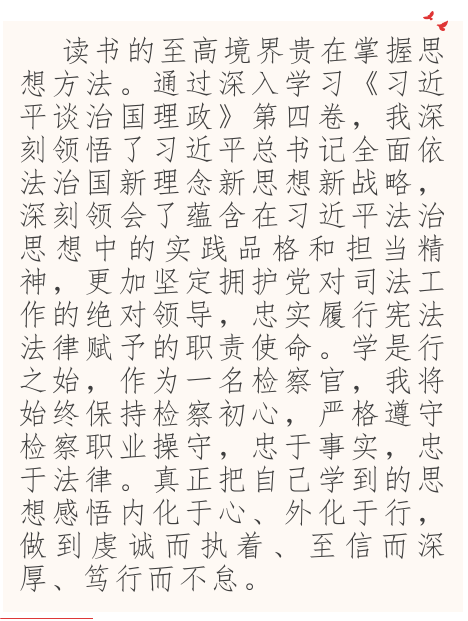 读书的至高境界贵在掌握思
想方法。通过深入学习《习近
平谈治国理政》第四卷，我深
刻领悟了习近平总书记全面依
法治国新理念新思想新战略，
深刻领会了蕴含在习近平法治
思想中的实践品格和担当精
神，更加坚定拥护党对司法工
作的绝对领导，忠实履行宪法
法律赋予的职责使命。学是行
之始，作为一名检察官，我将
始终保持检察初心，严格遵守
检察职业操守，忠于事实，忠
于法律。真正把自己学到的思
想感悟内化于心、外化于行，
做到虔诚而执着、至信而深
厚、笃行而不怠。